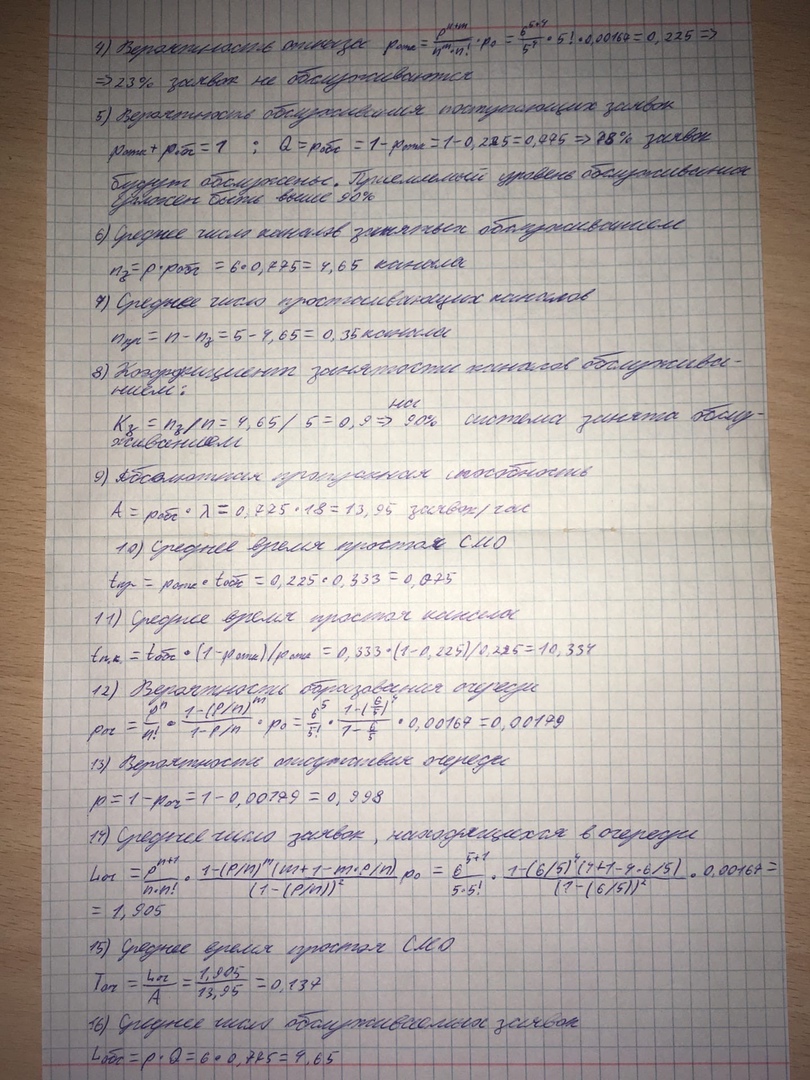 4) Вероятность отказа pотк = ρ^(n+m)/(n^m·n!)·p0 = 6^(5+4)/5^4 · 5! · 0,00167 = 0,225 =>
=> 23% заявок не обслуживаются
5) Вероятность обслуживания поступающих заявок
pотк + pобс = 1 ; Q = pобс = 1 - pотк = 1 - 0,225 = 0,775 => 78% заявок
будут обслужены. Приемлемый уровень обслуживания
должен быть выше 90%
6) Среднее число каналов занятых обслуживанием
nз = ρ · pобс = 6 · 0,775 = 4,65 канала
7) Среднее число простаивающих каналов
nпр = n - nз = 5 - 4,65 = 0,35 канала
8) Коэффициент занятости каналов обслужива-
нием:
Kз = nз/n = 4,65 / 5 = 0,9 => на 90% система занята обслу-
живанием
9) Абсолютная пропускная способность
A = pобс · λ = 0,775 · 18 = 13,95 заявок/час
10) Среднее время простоя СМО
tпр = pотк · tобс = 0,225 · 0,333 = 0,075
11) Среднее время простоя канала
tп.к. = tобс · (1-pотк)/pотк = 0,333 · (1-0,225)/0,225 = 10,334
12) Вероятность образования очереди
pоч = ρ^n/n! · (1-(ρ/n)^m)/(1-ρ/n) · p0 = 6^5/5! · (1-(6/5)^4)/(1-6/5) · 0,00167 = 0,00179
13) Вероятность отсутствия очереди
p = 1 - pоч = 1 - 0,00179 = 0,998
14) Среднее число заявок, находящихся в очереди
Lоч = ρ^(n+1)/(n·n!) · (1-(ρ/n)^m(m+1-m·ρ/n))/(1-(ρ/n))^2 p0 = 6^(5+1)/(5·5!) · (1-(6/5)^4(4+1-4·6/5))/(1-(6/5))^2 · 0,00167 =
= 1,905
15) Среднее время простоя СМО
Tоч = Lоч/A = 1,905/13,95 = 0,137
16) Среднее число обслуживаемых заявок
Lобс = ρ · Q = 6 · 0,775 = 4,65